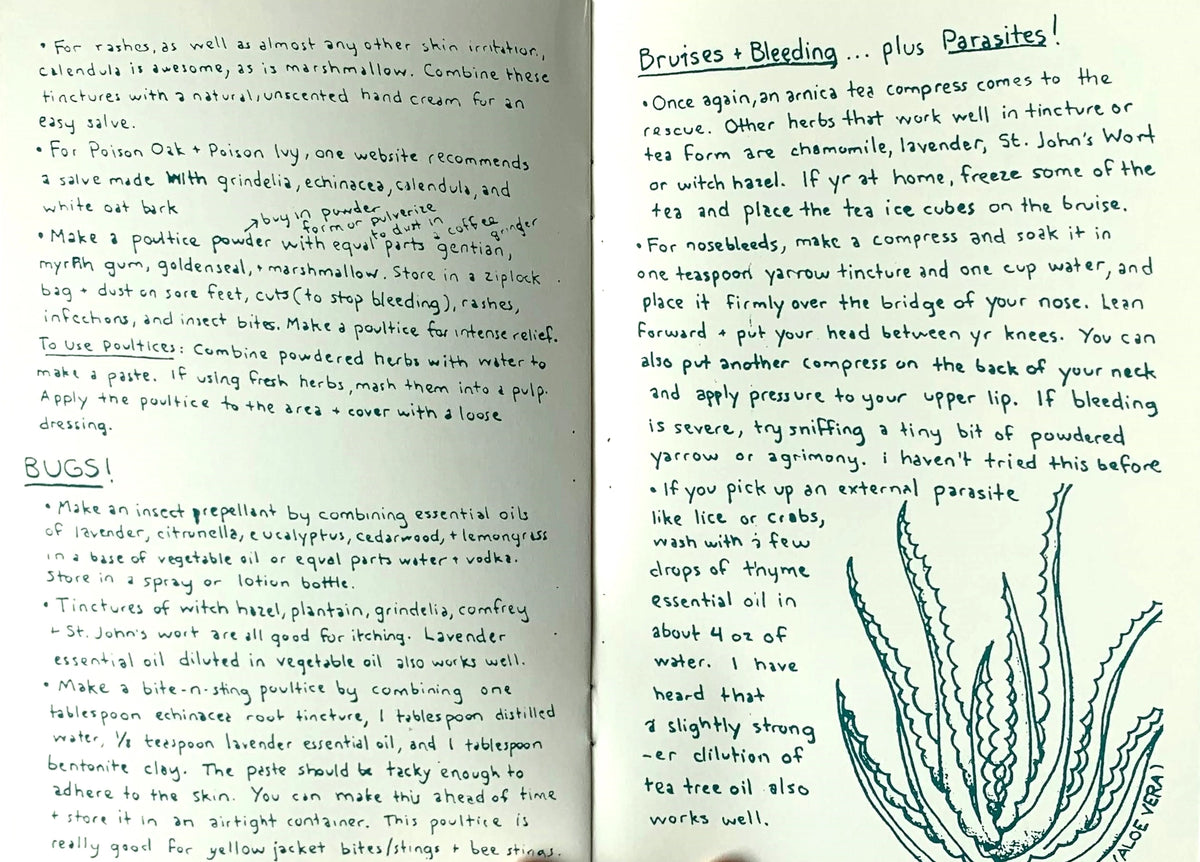 • For rashes, as well as almost any other skin irritation,
calendula is awesome, as is marshmallow. Combine these
tinctures with a natural, unscented hand cream for an
easy salve.
• For Poison Oak + Poison Ivy, one website recommends
a salve made with grindelia, echinacea, calendula, and
white oat bark
→ buy in powder
form or pulverize
to dust in a coffee grinder
• Make a poultice powder with equal parts gentian,
myrrh gum, goldenseal, + marshmallow. Store in a ziplock
bag + dust on sore feet, cuts (to stop bleeding), rashes,
infections, and insect bites. Make a poultice for intense relief.
To Use Poultices: Combine powdered herbs with water to
make a paste. If using fresh herbs, mash them into a pulp.
Apply the poultice to the area + cover with a loose
dressing.
BUGS!
• Make an insect repellant by combining essential oils
of lavender, citrunella, eucalyptus, cedarwood, + lemongrass
in a base of vegetable oil or equal parts water + vodka.
Store in a spray or lotion bottle.
• Tinctures of witch hazel, plantain, grindelia, comfrey
+ St. John's wort are all good for itching. Lavender
essential oil diluted in vegetable oil also works well.
• Make a bite-n-sting poultice by combining one
tablespoon echinacea root tincture, 1 tablespoon distilled
water, 1/8 teaspoon lavender essential oil, and 1 tablespoon
bentonite clay. The paste should be tacky enough to
adhere to the skin. You can make this ahead of time
+ store it in an airtight container. This poultice is
really good for yellow jacket bites/stings + bee stings.
Bruises + Bleeding ... plus Parasites!
• Once again, an arnica tea compress comes to the
rescue. Other herbs that work well in tincture or
tea form are chamomile, lavender, St. John's Wort
or witch hazel. If yr at home, freeze some of the
tea and place the tea ice cubes on the bruise.
• For nosebleeds, make a compress and soak it in
one teaspoon yarrow tincture and one cup water, and
place it firmly over the bridge of your nose. Lean
forward + put your head between yr knees. You can
also put another compress on the back of your neck
and apply pressure to your upper lip. If bleeding
is severe, try sniffing a tiny bit of powdered
yarrow or agrimony. i haven't tried this before
• If you pick up an external parasite
like lice or crabs,
wash with a few
drops of thyme
essential oil in
about 4 oz of
water. I have
heard that
a slightly strong
-er dilution of
tea tree oil also
works well.
ALOE VERA )